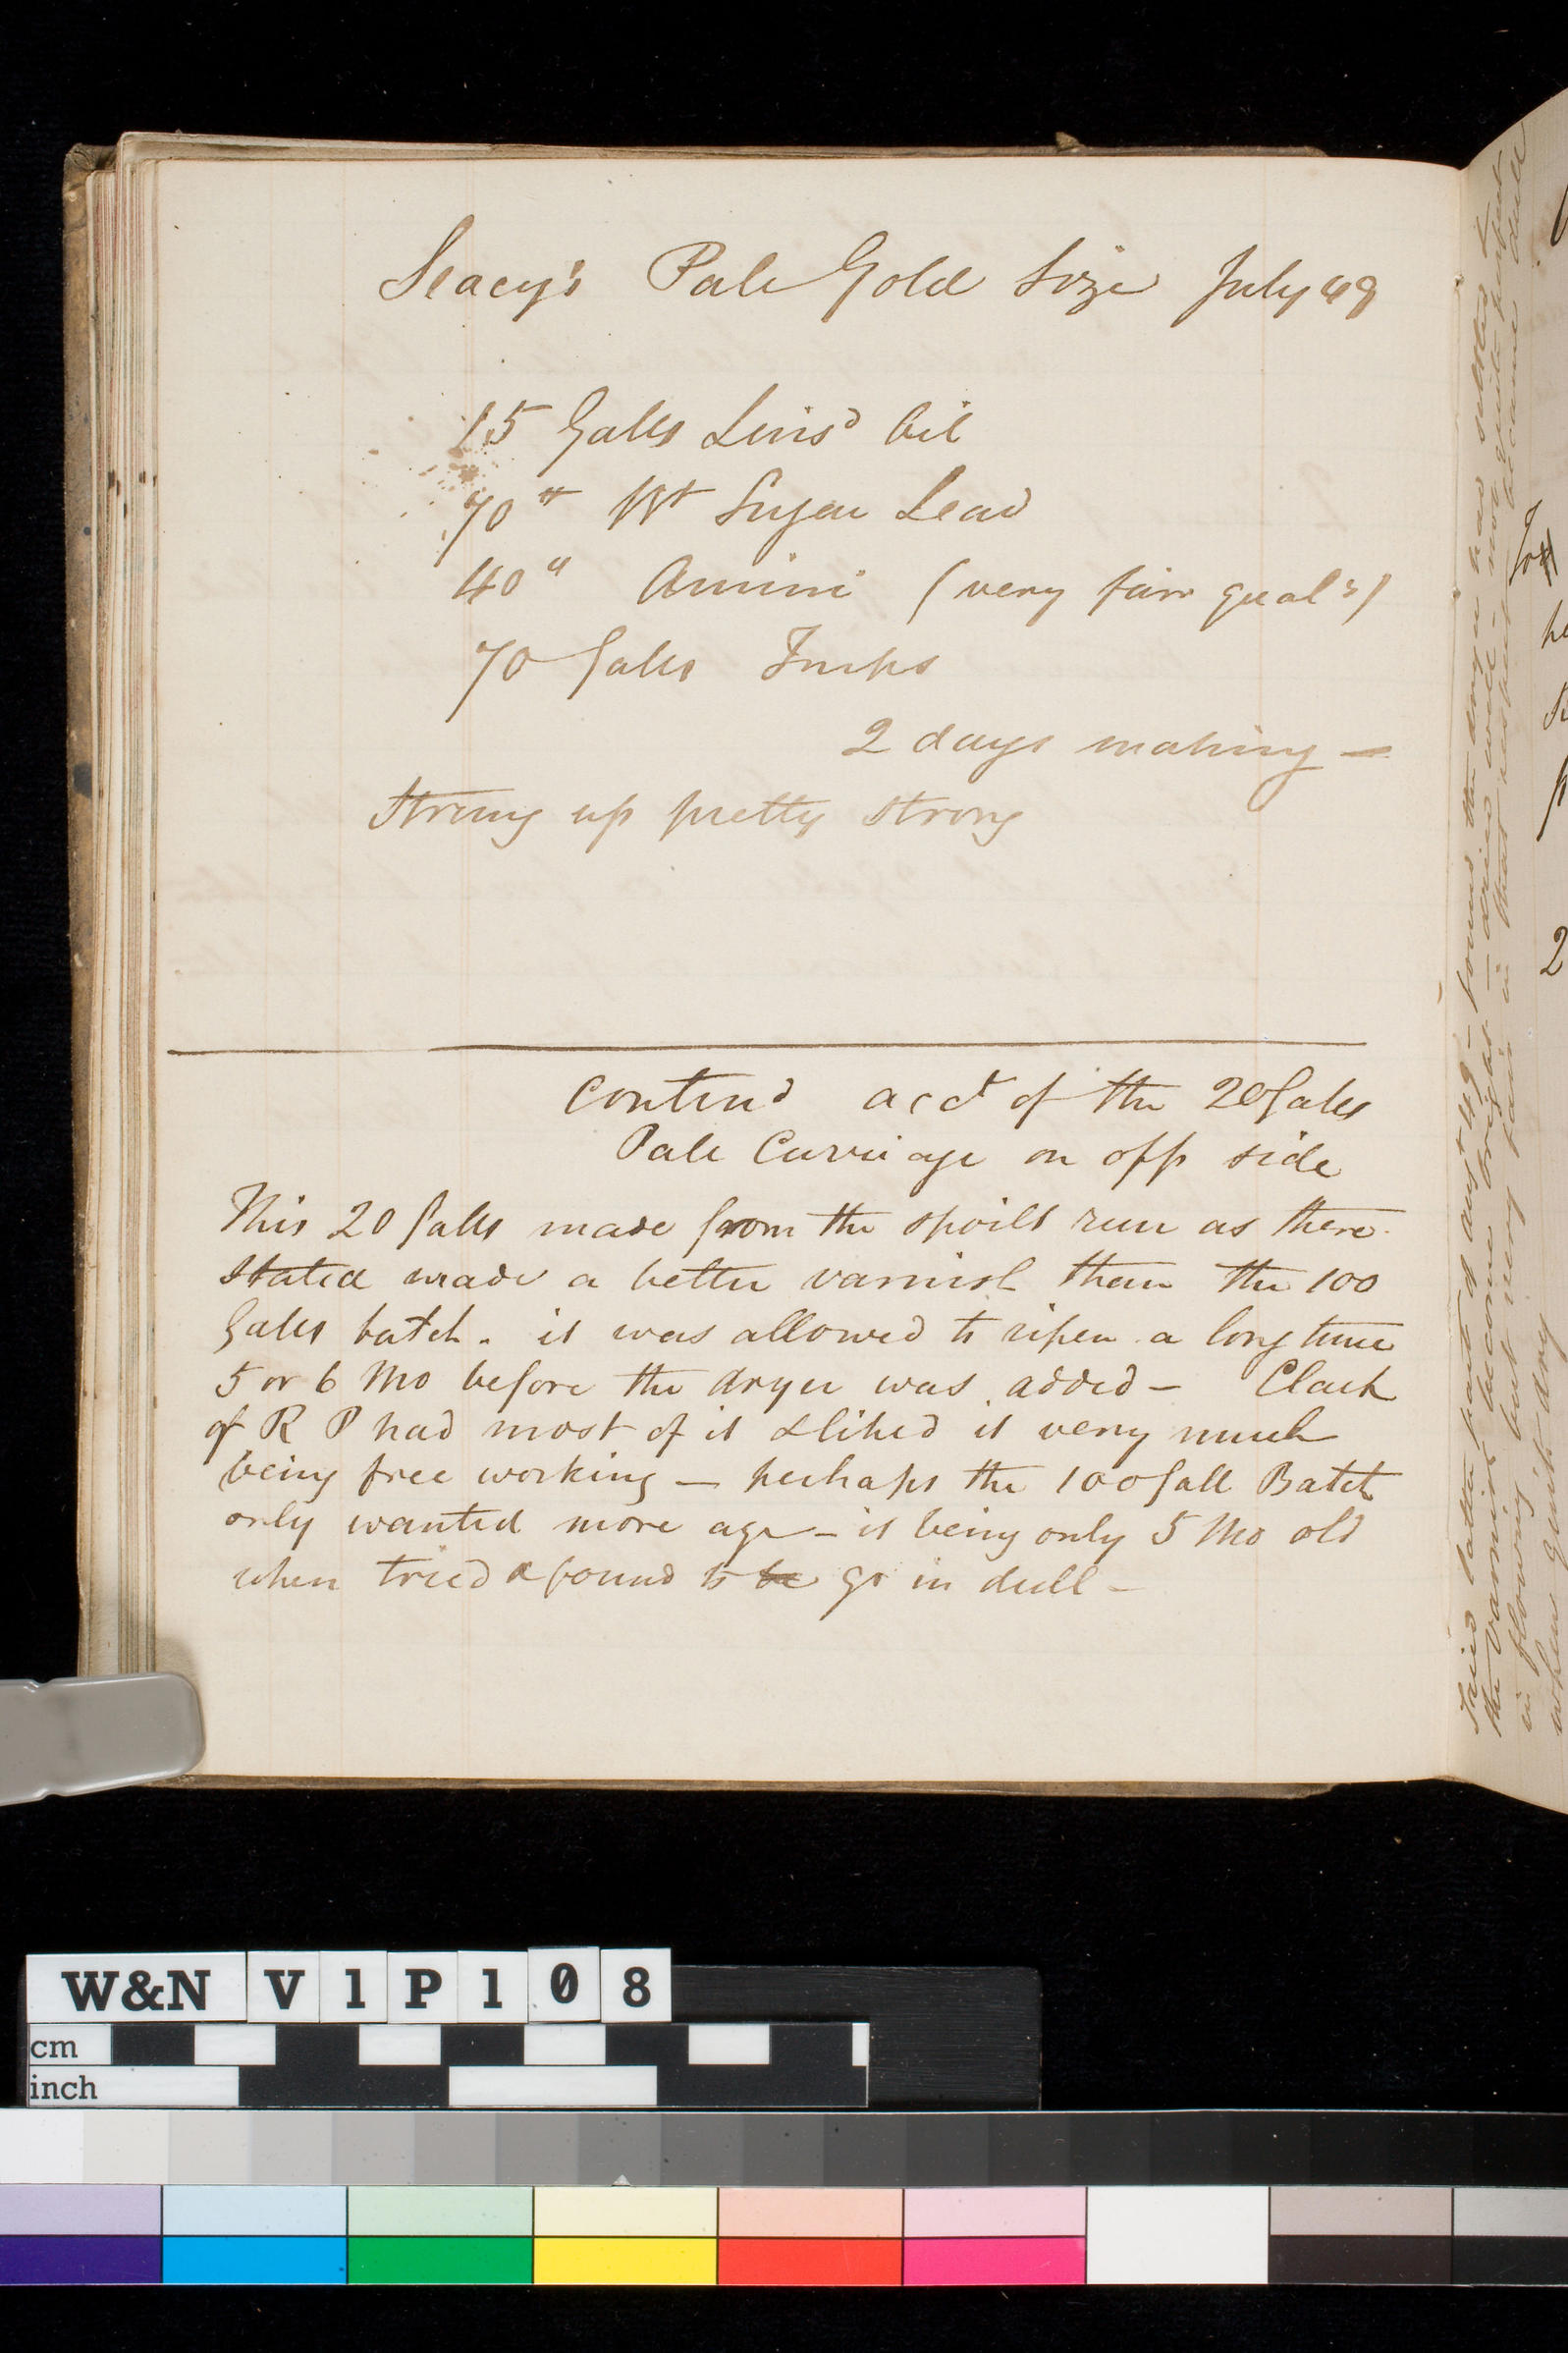 Stacy's Pale Gold Size July 49
15 Galls Lins^d Oil
70 ^lb Wt Sugar Lead
40 " Animi (very fair qual^y)
70 Galls Turps
2 days making —
Strung up pretty strong
Contin^d acc^t of the 20 Galls
Pale Carriage on opp side
This 20 Galls made from the spoilt run as there
stated made a better varnish than the 100
Galls batch. it was allowed to ripen a long time
5 or 6 Mo before the dryer was added — Clark
of R P had most of it & liked it very much
being free working — perhaps the 100 Gall Batch
only wanted more age — it being only 5 Mo old
when tried & found to be go in dull —
Tried latter part of Aug^t 49 — found the dryer had settled &
the varnish become bright — dried well — not quite perfect
in flowing but very fair in that respect — became dull
when quite dry
2
W&N V1P108
cm
inch